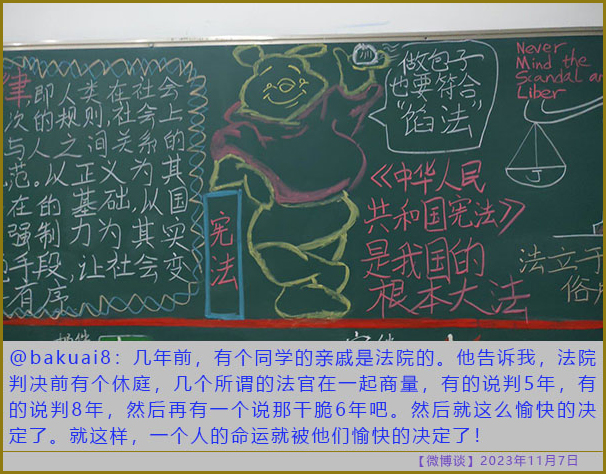 律,即人类在社会
次的规则,社会上
与人之间关系的
范。以正义为其
在的基础,从国
强制力为其实
手段,让社会变
有序
宪法
做包子
也要符合
“馅法”
《中华人民
共和国宪法》
是我国的
根本大法
Never
Mind the
Scandal an
Liber
法立于
俗
@bakuai8：几年前，有个同学的亲戚是法院的。他告诉我，法院
判决前有个休庭，几个所谓的法官在一起商量，有的说判5年，有
的说判8年，然后再有一个说那干脆6年吧。然后就这么愉快的决
定了。就这样，一个人的命运就被他们愉快的决定了！
【微博谈】2023年11月7日